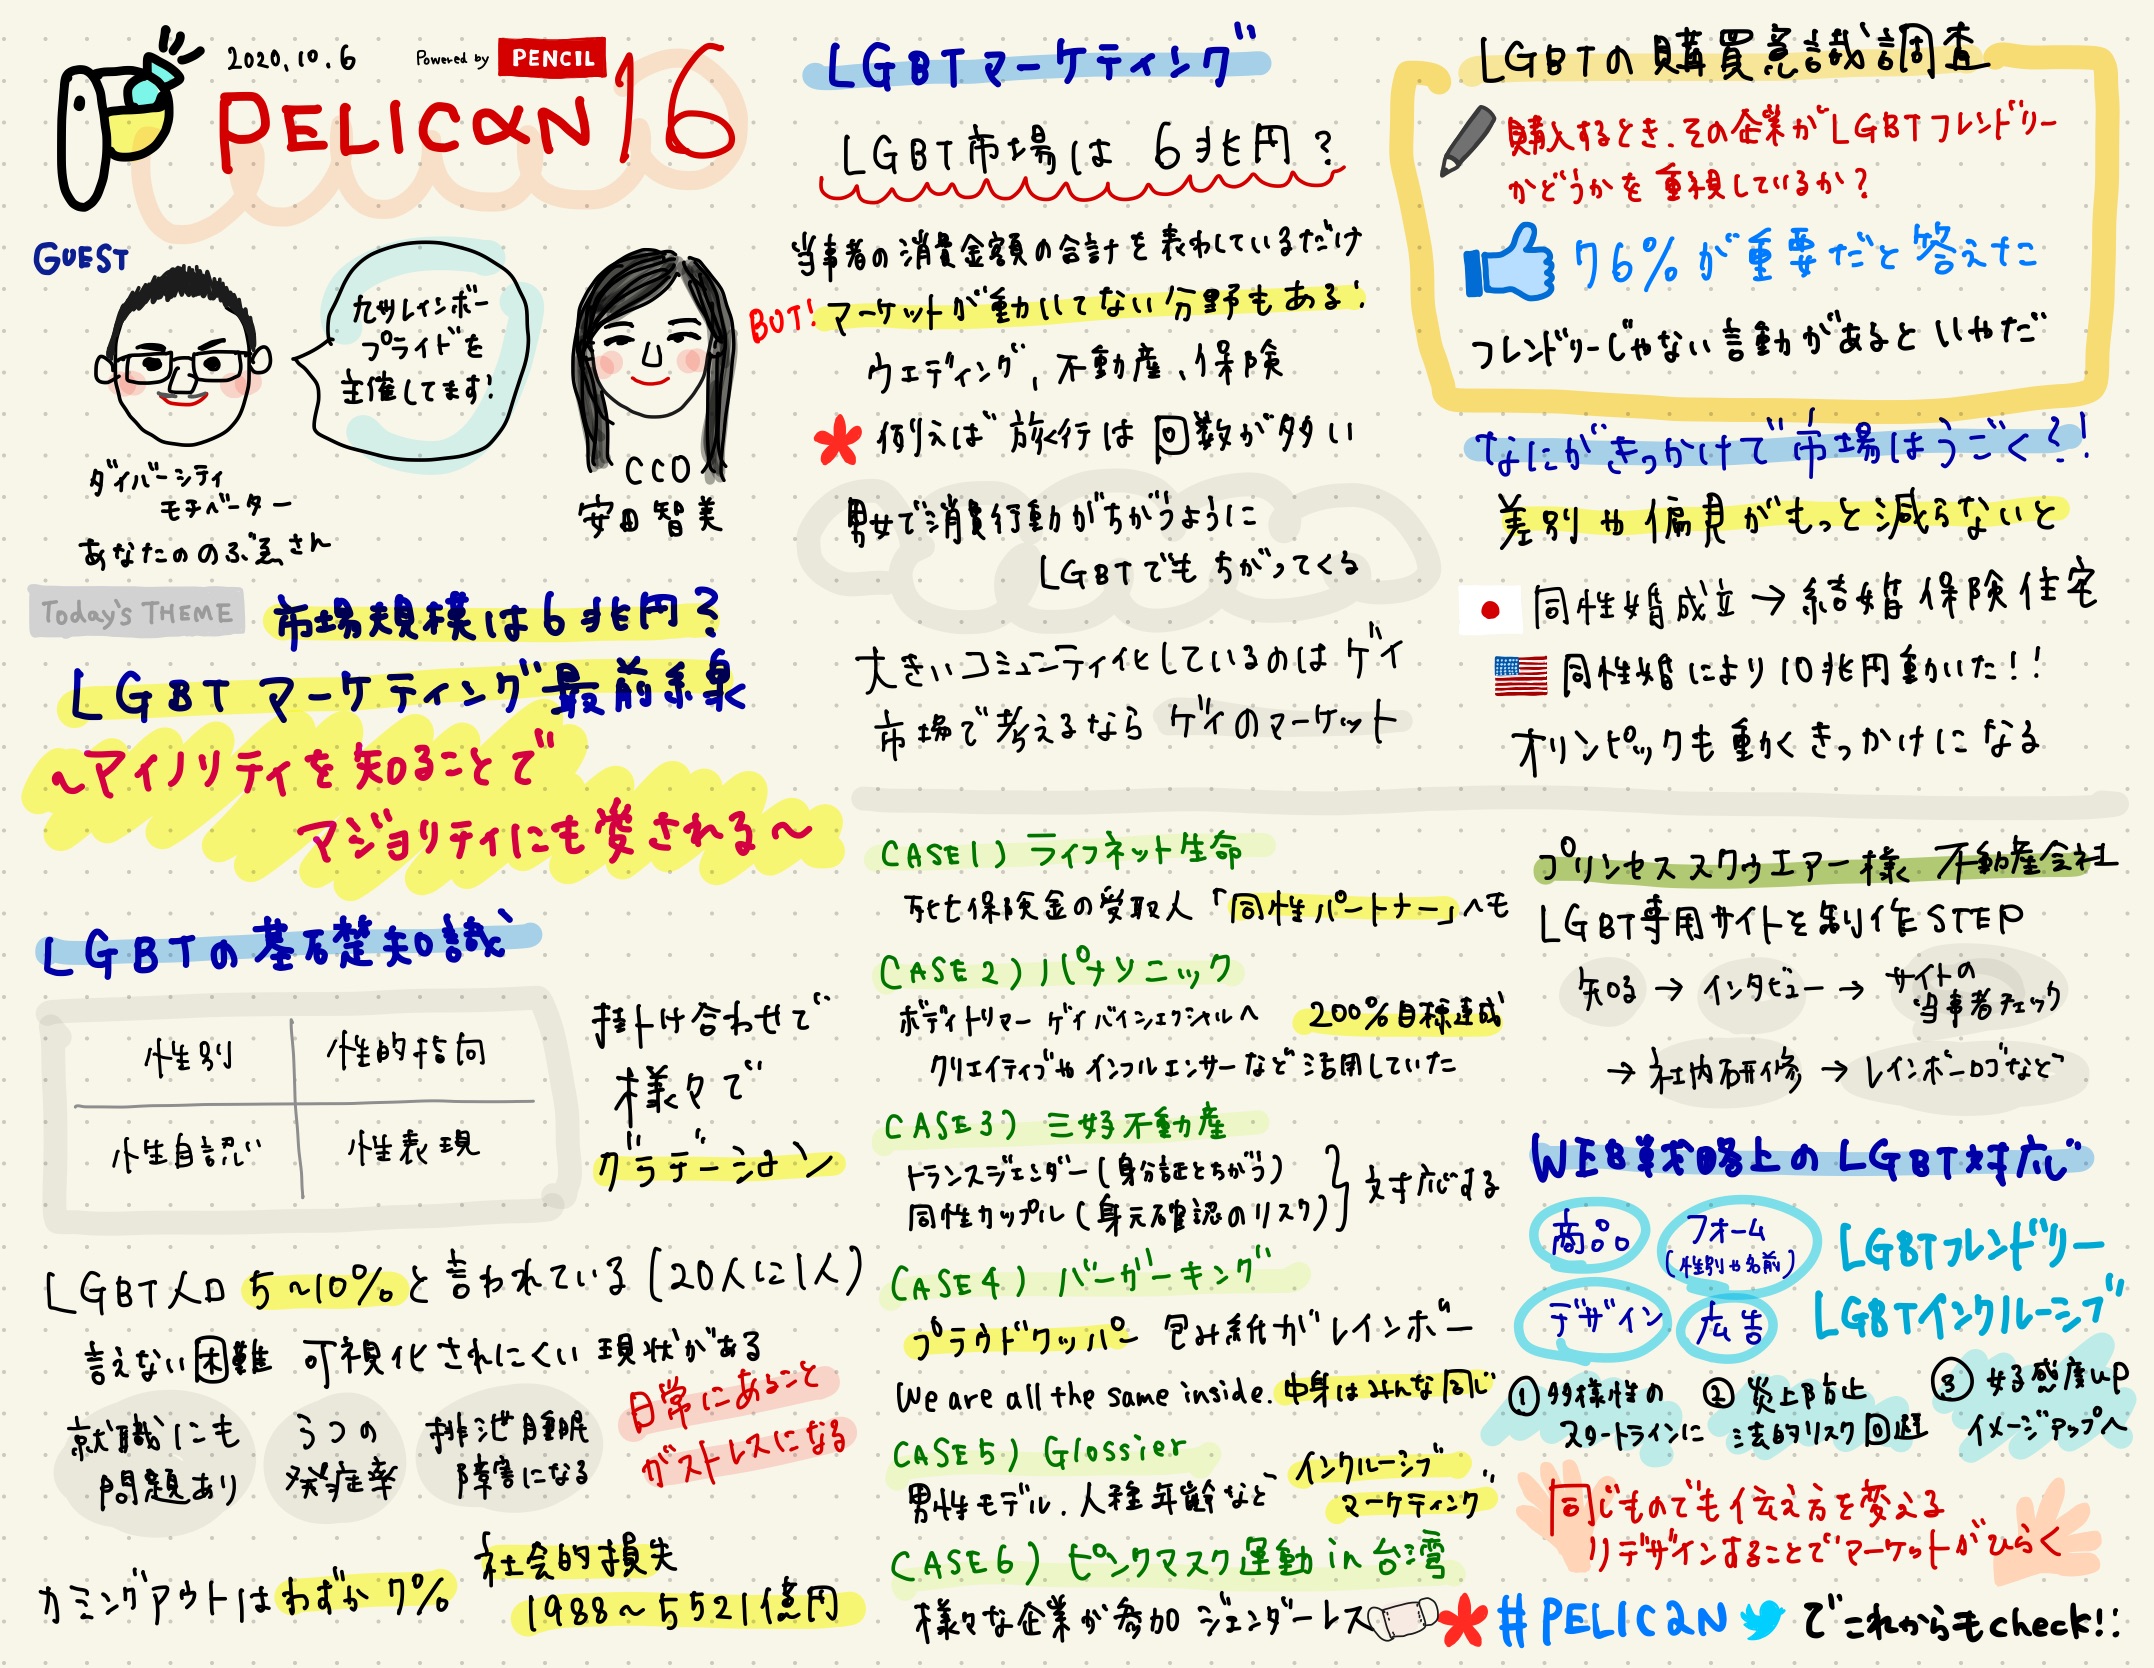 2020.10.6
Powered by PENCIL
PELICAN 16
GUEST
九州レインボー
プライドを
主催してます!
ダイバーシティ
モチベーター
あなたののぶゑさん
CCO
安田智美
Today's THEME
市場規模は6兆円?
LGBTマーケティング最前線
〜マイノリティを知ることで
マジョリティにも愛される〜
LGBTの基礎知識
性別
性的指向
性自認
性表現
掛け合わせで
様々で
グラデーション
LGBT人口 5〜10%と言われている(20人に1人)
言えない困難 可視化されにくい現状がある
就職にも
問題あり
うつの
発症率
排泄睡眠
障害になる
日常にあること
がストレスになる
カミングアウトはわずか7%
社会的損失
1988〜5521億円
LGBTマーケティング
LGBT市場は6兆円?
当事者の消費金額の合計を表わしているだけ
BUT! マーケットが動いてない分野もある!
ウエディング、不動産、保険
例えば旅行は回数が多い
男女で消費行動がちがうように
LGBTでもちがってくる
大きいコミュニティ化しているのはゲイ
市場で考えるならゲイのマーケット
CASE1) ライフネット生命
死亡保険金の受取人「同性パートナー」へも
CASE2) パナソニック
ボディトリマー ゲイバイシェクシャルへ 200%目標達成
クリエイティブやインフルエンサーなど活用していた
CASE3) 三好不動産
トランスジェンダー(身分証とちがう)
同性カップル(身元確認のリスク)
対応する
CASE4) バーガーキング
プラウドワッパー 包み紙がレインボー
We are all the same inside. 中身はみんな同じ
CASE5) Glossier
男性モデル.人種年齢など
インクルーシブ
マーケティング
CASE6) ピンクマスク運動in台湾
様々な企業が参加 ジェンダーレス
LGBTの購買意識調査
購入するとき.その企業がLGBTフレンドリー
かどうかを重視しているか?
76%が重要だと答えた
フレンドリーじゃない言動があるといやだ
なにがきっかけで市場はうごく?!
差別や偏見がもっと減らないと
同性婚成立→結婚保険住宅
同性婚により10兆円動いた!!
オリンピックも動くきっかけになる
プリンセススクウエアー様 不動産会社
LGBT専用サイトを制作STEP
知る→インタビュー→サイトの
当事者チェック
→社内研修→レインボーロゴなど
WEB戦略上のLGBT対応
商品
フォーム
(性別や名前)
デザイン
広告
LGBTフレンドリー
LGBTインクルーシブ
①多様性の
スタートラインに
②炎上防止
法的リスク回避
③好感度up
イメージアップへ
同じものでも伝え方を変える
リデザインすることでマーケットがひらく
#PELICAN でこれからもcheck!!